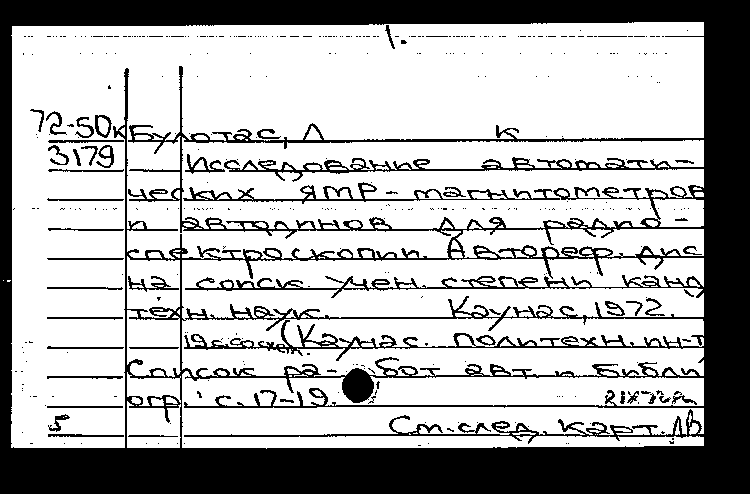 1.
72-50к Булотас, Л К
3179 Исследование автомати-
ческих ЯМР-магнитометров
и автодинов для радио-
спектроскопии. Автореф. дис
на соиск. учен. степени канд
техн. наук. Каунас, 1972.
19 с. со схем. (Каунас. политехн. ин-т
Список ра- бот авт. и библи
огр.: с. 17-19.
5 См. след. карт. ЛВ